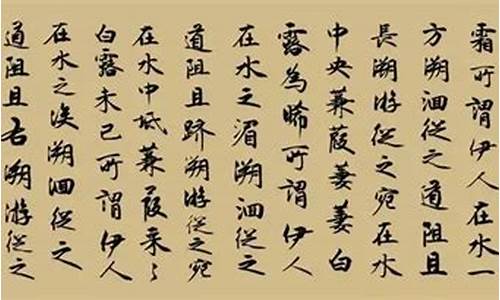 霜所謂伊人在水一
方溯洄從之道阻且
長溯游從之宛在水
中央蒹葭萋萋白
露為晞所謂伊人
在水之湄溯洄從之
道阻且躋溯游從之宛
在水中坻蒹葭采〻
白露未已所謂伊人
在水之涘溯洄從之
道阻且右溯游從之